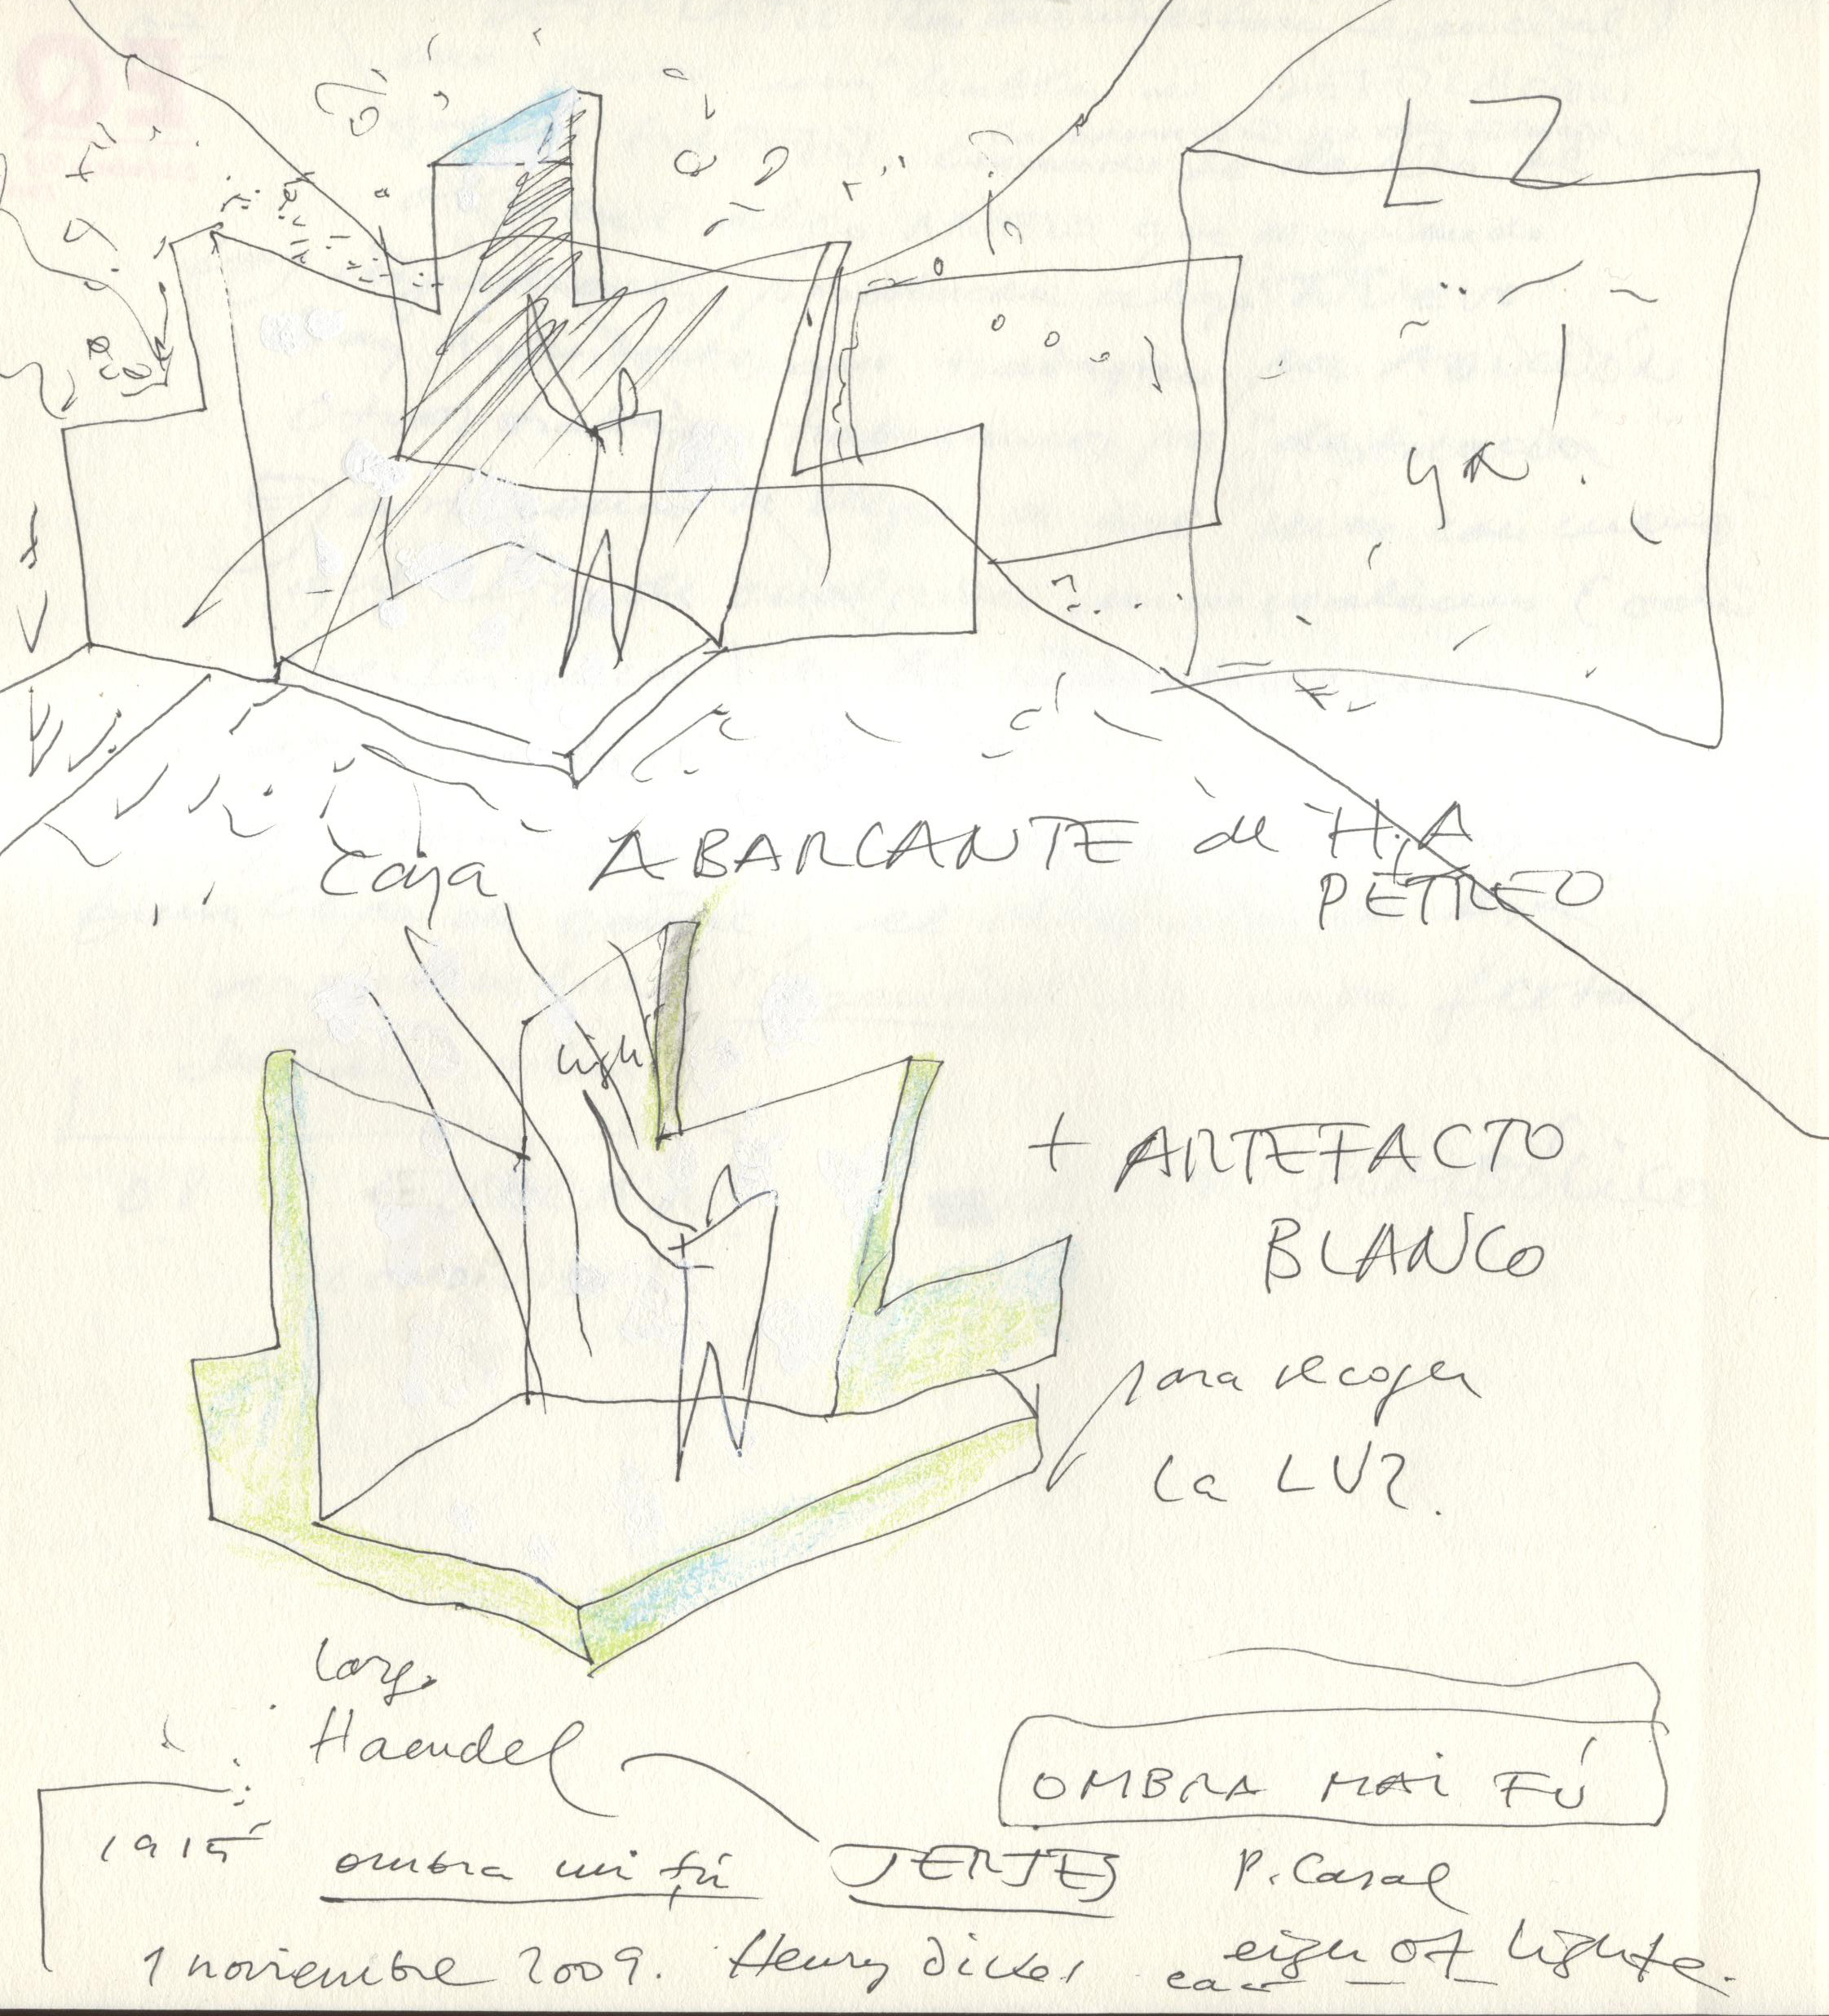 LZ
ya.
Caja ABARCANTE de H.A
PÉTREO
ligh
+ ARTEFACTO
BLANCO
para recoger
la LUZ.
Largo
Haendel
OMBRA MAI FÚ
1915
ombra mi fú JERJES P. Casal
1 noviembre 2009. Henry eign of lighte.